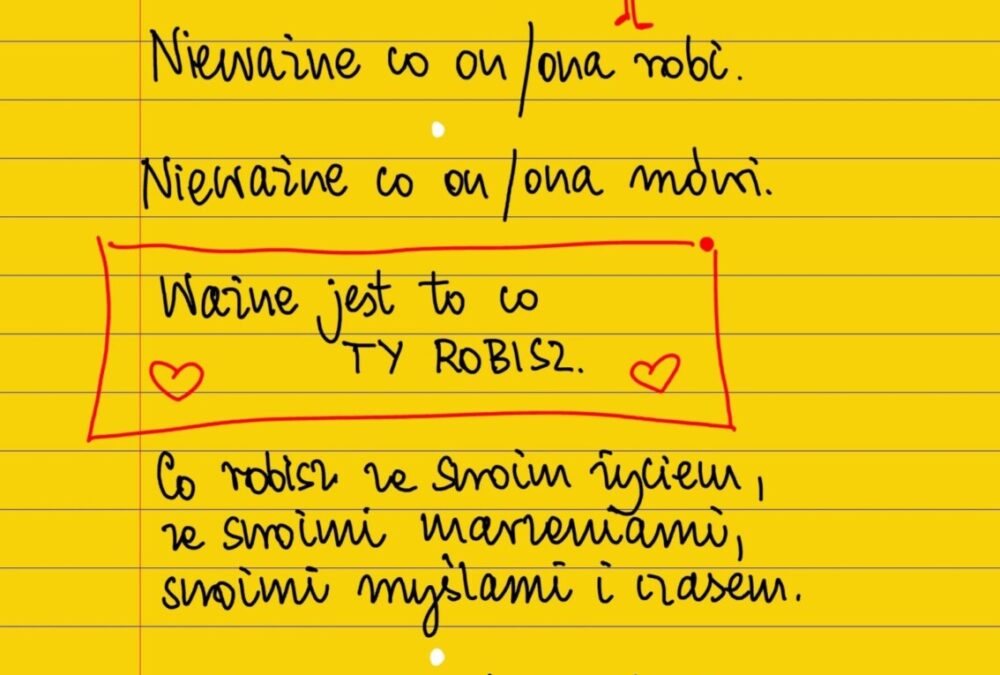 Nieważne co on/ona robi.
Nieważne co on/ona mówi.
Ważne jest to co
TY ROBISZ.
Co robisz ze swoim życiem,
ze swoimi marzeniami,
swoimi myślami i czasem.